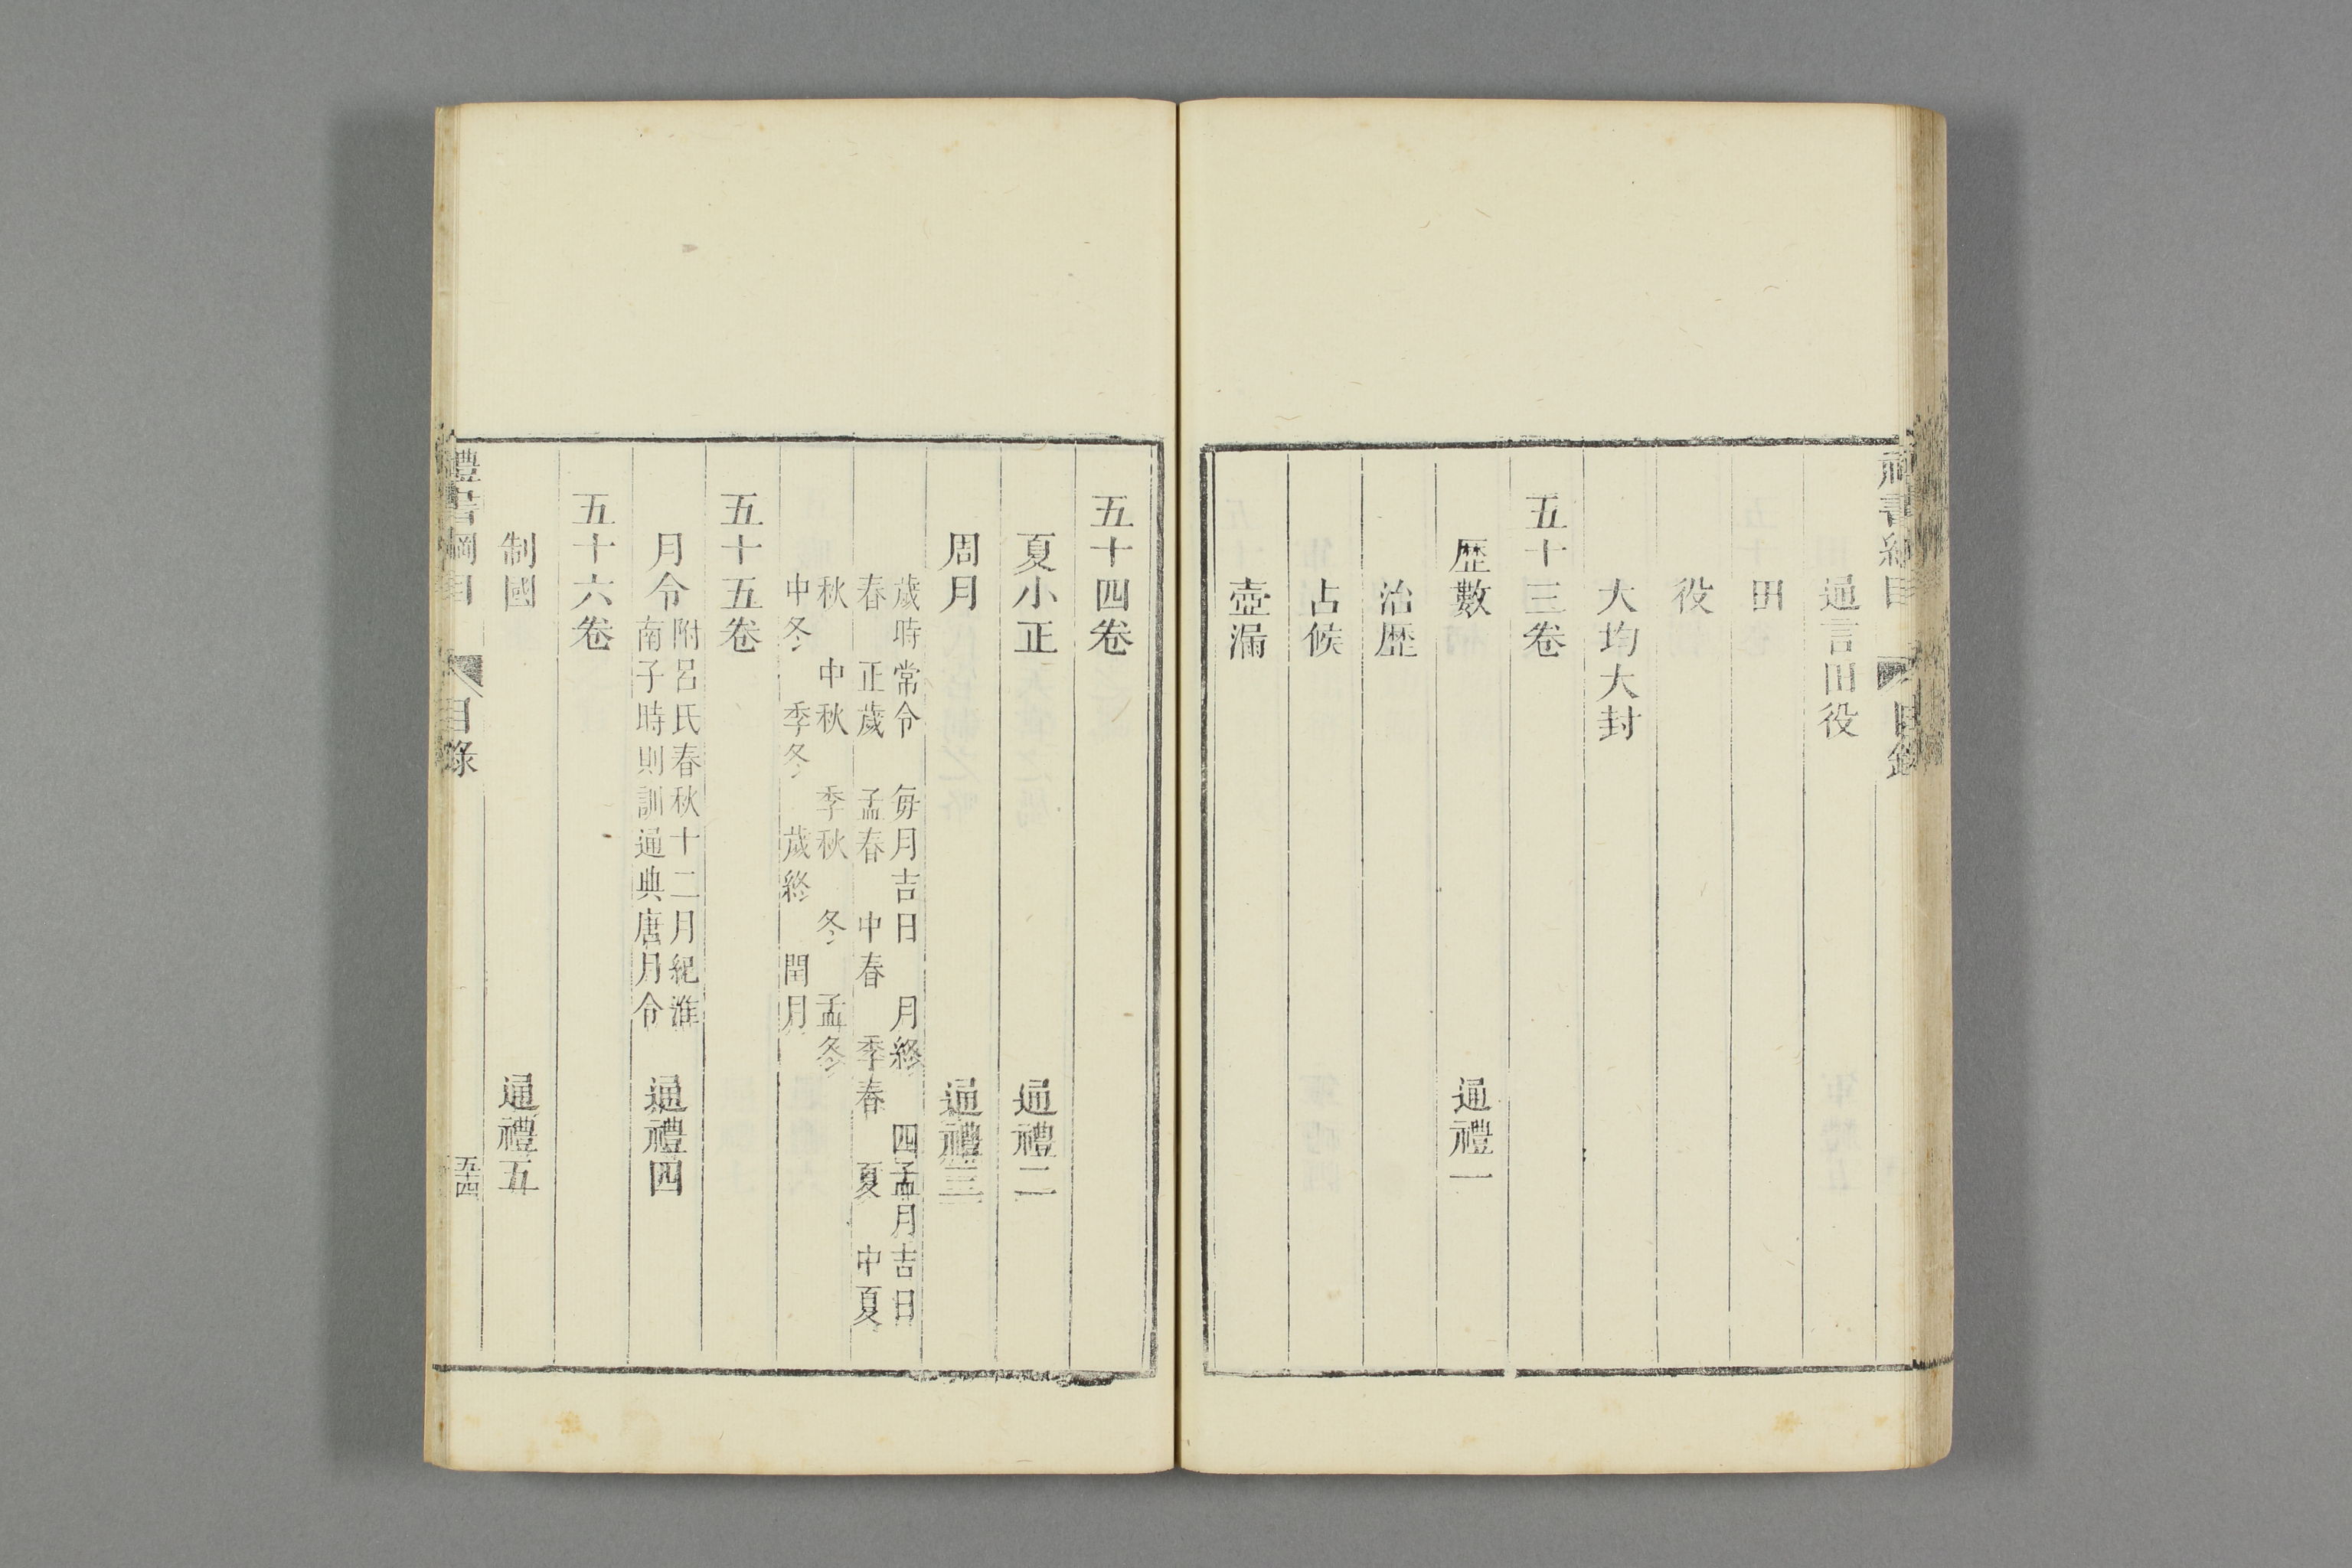 通言田役
田
役
大均大封
五十三卷
歷數　通禮一
治歷
占候
壺漏
五十四卷
夏小正　通禮二
周月　通禮三
歲時常令　每月吉日　月終　四孟月吉日
春　正歲　孟春　中春　季春　夏　中夏
秋　中秋　季秋　冬　孟冬
中冬　季冬　歲終　閏月
五十五卷
月令　附呂氏春秋十二月紀淮
南子時則訓通典唐月令　通禮四
五十六卷
制國　通禮五
禮書綱目　目錄　五十四